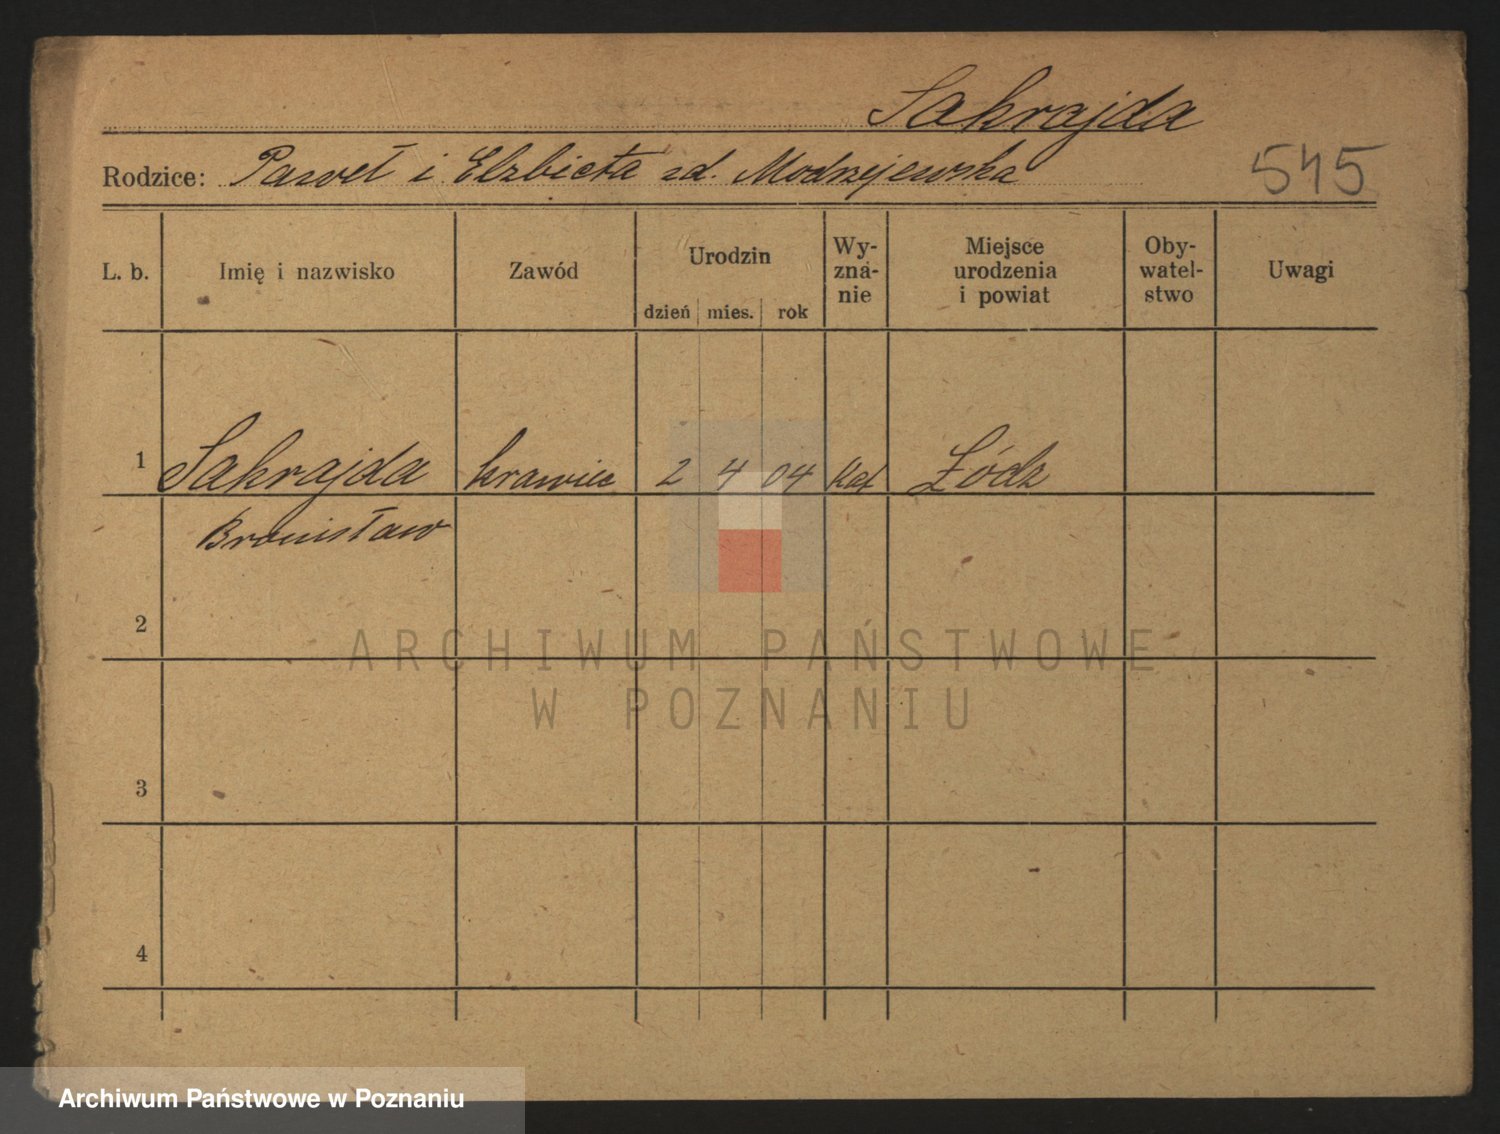 Sakrajda
Rodzice: Paweł i Elżbieta zd. Modrzejewska
545
L. b. Imię i nazwisko Zawód Urodzin dzień mies. rok Wy-zna-nie Miejsce urodzenia i powiat Oby-watel-stwo Uwagi
1 Sakrajda krawiec 2 4 04 Kat Łódz
Bronisław
2
3
4
ARCHIWUM PAŃSTWOWE
W POZNANIU
Archiwum Państwowe w Poznaniu